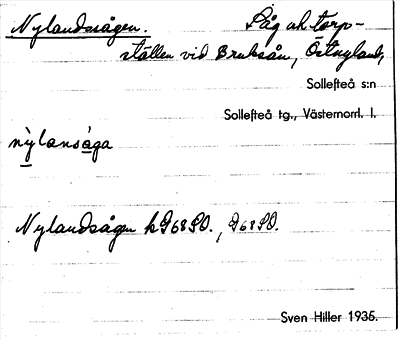 Nylandssågen. Såg och torp-
ställen vid Bruksån, Östnyland,
Sollefteå s:n
Sollefteå tg., Västernorrl. l.
nỳlansåga
Nylandsågen
Sven Hiller 1935.